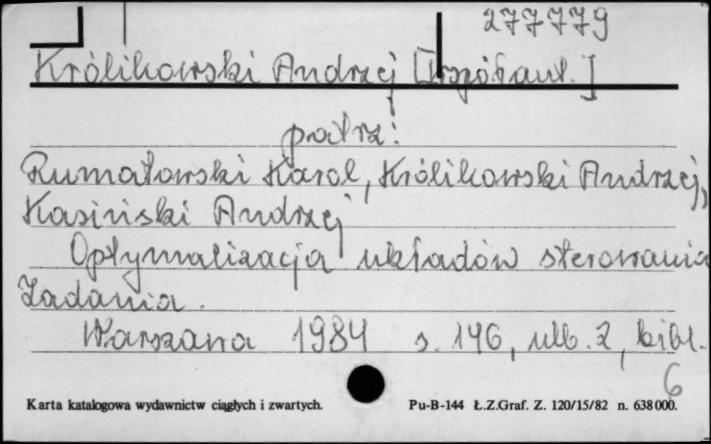 277779
Królikowski Andrzej [współaut.]
patrz:
Rumatowski Karol, Królikowski Andrzej,
Kasiński Andrzej
Optymalizacja układów sterowania
Zadania.
Warszawa 1984 s. 146, nlb. 2, bibl.
6
Karta katalogowa wydawnictw ciągłych i zwartych. Pu-B-144 Ł.Z.Graf. Z. 120/15/82 n. 638 000.